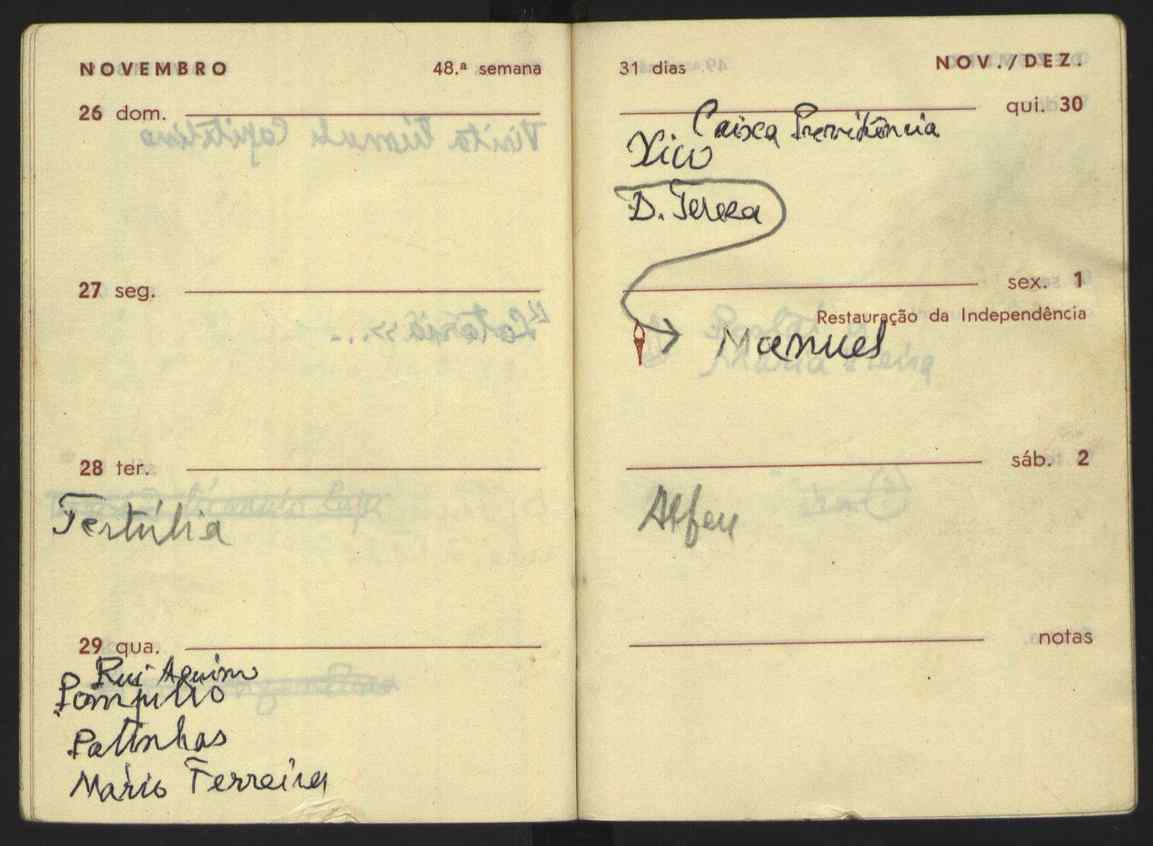 NOVEMBRO 48.ª semana
26 dom.
27 seg.
28 ter.
Tertúlia
29 qua.
Rui
Pompílio
Patinhas
Mário Ferreira
31 dias NOV./DEZ.
qui. 30
Caixa Previdência
Xico
D. Tereza
sex. 1
Restauração da Independência
Manuel
sáb. 2
notas